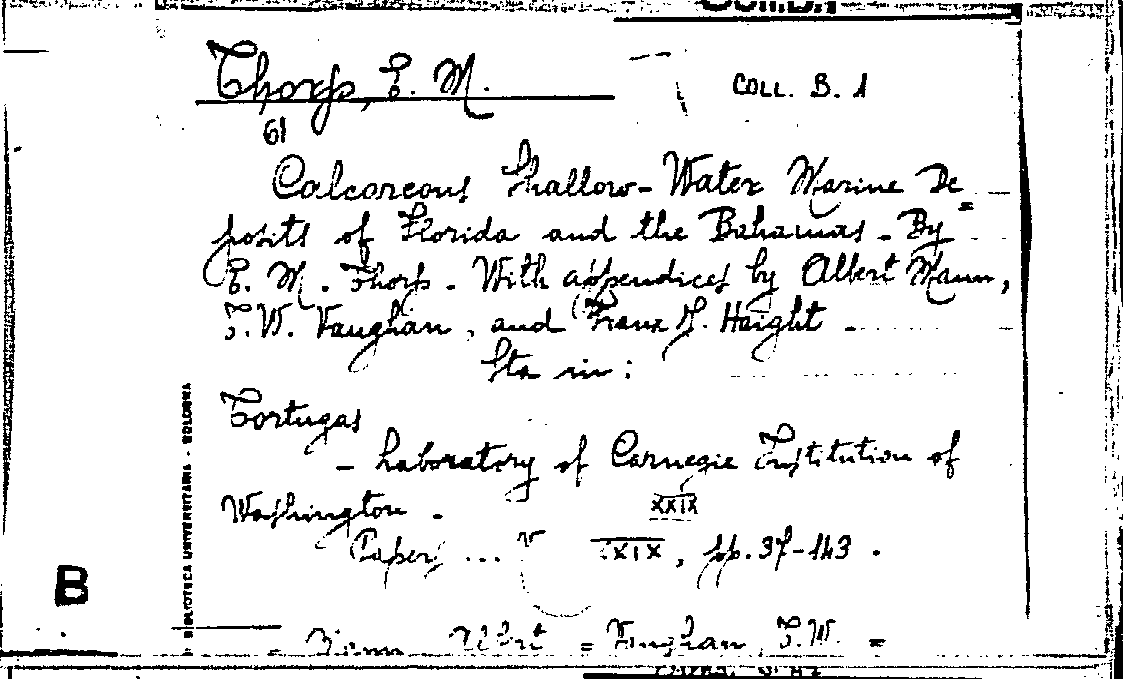 Thorp, E. M.
COLL. B. 1
61
Calcareous Shallow-Water Marine De=
posits of Florida and the Bahamas - By
E. M. Thorp. - With appendices by Albert Mann,
T. W. Vaughan, and Franz J. Haight -
Sta in:
Tortugas
- Laboratory of Carnegie Institution of
Washington -
XXIX
Papers ... V XXIX, pp. 37-143.
B
BIBLIOTECA UNIVERSITARIA - BOLOGNA
= Mann Albert = Vaughan, T. W. =